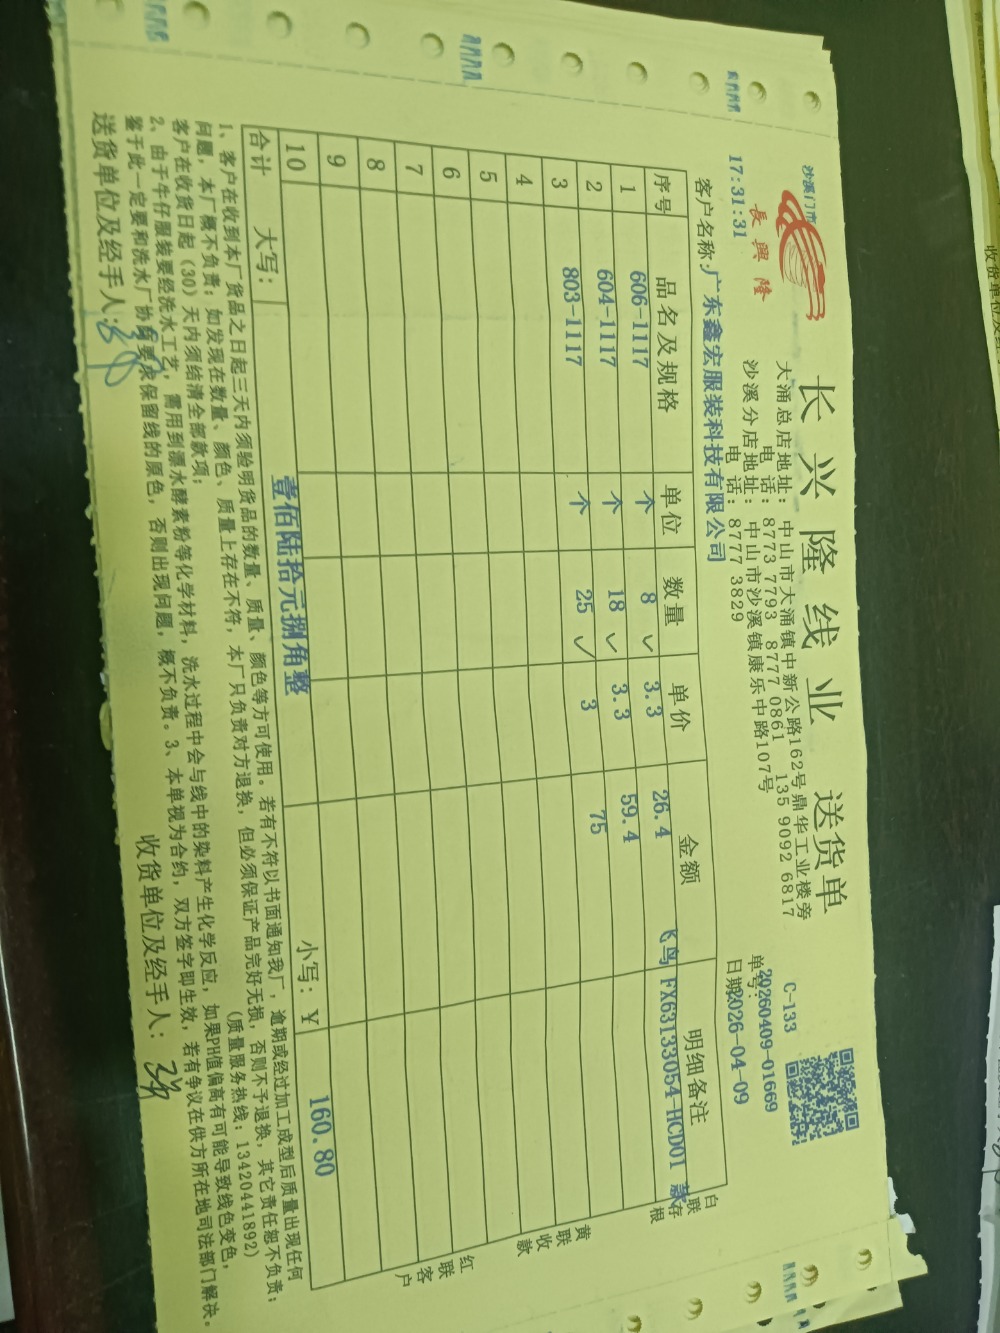 沙溪门市
長興隆
17:31:31
长兴隆线业 送货单
大涌总店地址: 中山市大涌镇中新公路162号鼎华工业楼旁
电话: 8773 7793 8777 0861 135 9092 6817
沙溪分店地址: 中山市沙溪镇康乐中路107号
电话: 8777 3829
C-133
单号: 20260409-01669
日期: 2026-04-09
客户名称:广东鑫宏服装科技有限公司
序号 品名及规格 单位 数量 单价 金额 明细备注
1 606-1117 个 8 3.3 26.4 飞鸟 FX63133054-HCD01 款
2 604-1117 个 18 3.3 59.4
3 803-1117 个 25 3 75
4
5
6
7
8
9
10
合计 大写: 壹佰陆拾元捌角整 小写: ¥ 160.80
白联存根
黄联收款
红联客户
1、客户在收到本厂货品之日起三天内须验明货品的数量、质量、颜色等方可使用。若有不符以书面通知我厂,逾期或经过加工成型后质量出现任何
问题,本厂概不负责;如发现在数量、颜色、质量上存在不符,本厂只负责对方退换,但必须保证产品完好无损,否则不予退换,其它责任恕不负责;
客户在收货日起(30)天内须结清全部款项; (质量服务热线:13420441892)
2、由于牛仔服装要经洗水工艺,需用到漂水酵素粉等化学材料,洗水过程中会与线中的染料产生化学反应,如果PH值偏高有可能导致线色变色,
鉴于此一定要和洗水厂协商要求保留线的原色,否则出现问题,概不负责。3、本单视为合约,双方签字即生效,若有争议在供方所在地司法部门解决。
送货单位及经手人:
收货单位及经手人: